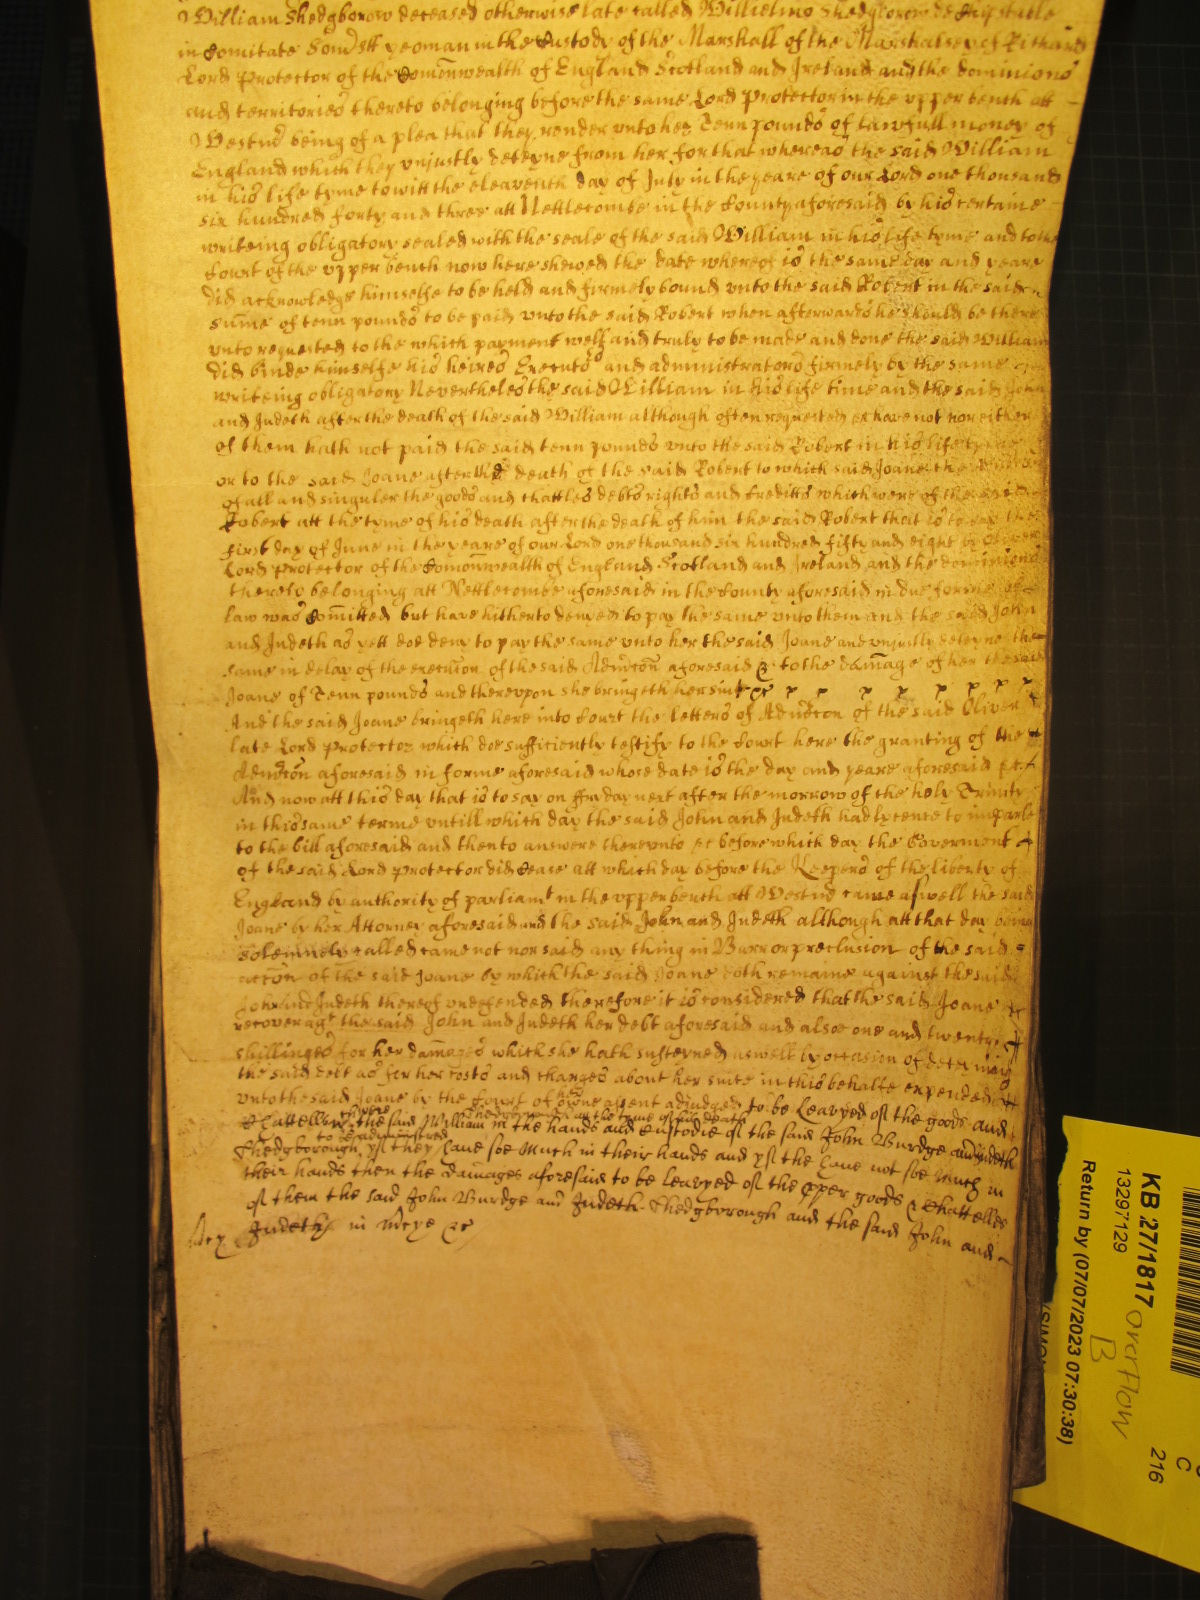 William Shedgborow deceased otherwise late called Willielmo Shedgborow de
in Comitatu Som̄sett yeoman in the Custody of the Marshall of the Marshalsey of Richard
Lord Protector of the Com̄onwealth of England Scotland and Ireland and the dominions
and territories thereto belonging before the same Lord Protector in the upper bench att
Westmr̄ being of a plea that they render unto her Tenn pounds of lawfull money of
England which they unjustly deteyne from her for that whereas the said William
in his life tyme to witt the eleaventh day of July in the yeare of our Lord one thousand
six hundred forty and three att Nettlecombe in the County aforesaid by his certaine
writeing obligatory sealed with the seale of the said William in his life tyme and to the
Court of the upper bench now here shewed the date whereof is the same day and yeare
did acknowledge himselfe to be held and firmely bound unto the said Robert in the said
sum̄e of tenn pounds to be paid unto the said Robert when afterwards he should be there
unto requested to the which payment well and truly to be made and done the said William
did binde himselfe his heires Executos and administrators firmely by the same
writeing obligatory Nevertheles the said William in his life time and the said John
and Judeth after the death of the said William although often requested &c have not nor either
of them hath not paid the said tenn pounds unto the said Robert in his life tyme
or to the said Joane after the death of the said Robert to which said Joane the
of all and singuler the goods and chattles debts rights and Creditts which were of the said
Robert att the tyme of his death after the death of him the said Robert that is to say the
first day of June in the yeare of our Lord one thousand six hundred fifty and eight by Oliver
Lord Protector of the Com̄onwealth of England Scotland and Ireland and the dominions
thereto belonging att Nettlecombe aforesaid in the County aforesaid in due forme of
law was Com̄itted but have hitherto denyed to pay the same unto them and the said John
and Judeth as yett doe deny to pay the same unto her the said Joane and unjustly deteyne the
same in delay of the execuc̄on of the said Adm̄c̄on aforesaid & to the dam̄age of her the said
Joane of Tenn pounds and thereupon she bringeth her suit &c
And the said Joane bringeth here into Court the letters of Adm̄c̄on of the said Oliver
late Lord Protector which doe sufficiently testify to the Court here the granting of the
Adm̄c̄on aforesaid in forme aforesaid whose date is the day and yeare aforesaid &c
And now att this day that is to say on ffryday next after the morrow of the holy Trinity
in this same terme untill which day the said John and Judeth had lycence to imparle
to the bill aforesaid and then to answere thereunto &c before which day the Goverment
of the said Lord Protector did Cease att which day before the Keepers of the liberty of
England by authority of parliamt in the upper bench att Westmr̄ came aswell the said
Joane by her Attorney aforesaid and the said John and Judeth although att that day being
solemnely called came not nor said any thing in Barr or preclusion of the said
acc̄on of the said Joane by which the said Joane doth remaine against the said
John and Judeth thereof undefended therefore it is considered that the said Joane
recover agt the said John and Judeth her debt aforesaid and alsoe one and twenty
shillinges for her dam̄ages which she hath susteyned aswell by occasion of deteyning
the said debt as for her costs and charges about her suite in this behalfe expended
unto the said Joane by the Court of here owne assent adjudged to be Leavyed of the goods and
Chattells which were the said William Shedgborough att the tyme of his death in the hands and Custodie of the said John Burdge and Judeth
Shedgborough to be administred yf they have soe Much in their hands and yf they have not soe Much in
their hands then the damages aforesaid to be leavyed of the pper goods & Chattelles
of them the said John Burdge and Judeth Shedgborough and the said John and
Mcy Judeth in Mcye &c
KB 27/1817
13297129
Return by (07/07/2023 07:30:38)
overflow
B
C
216